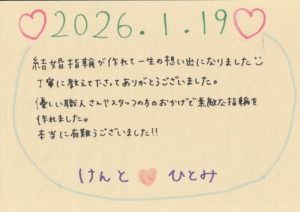 2026.1.19
結婚指輪が作れて一生の想い出になりました
丁寧に教えて下さってありがとうございました。
優しい職人さんやスタッフの方のおかげで素敵な指輪を
作れました。
本当に有難うございました!!
けんと ひとみ